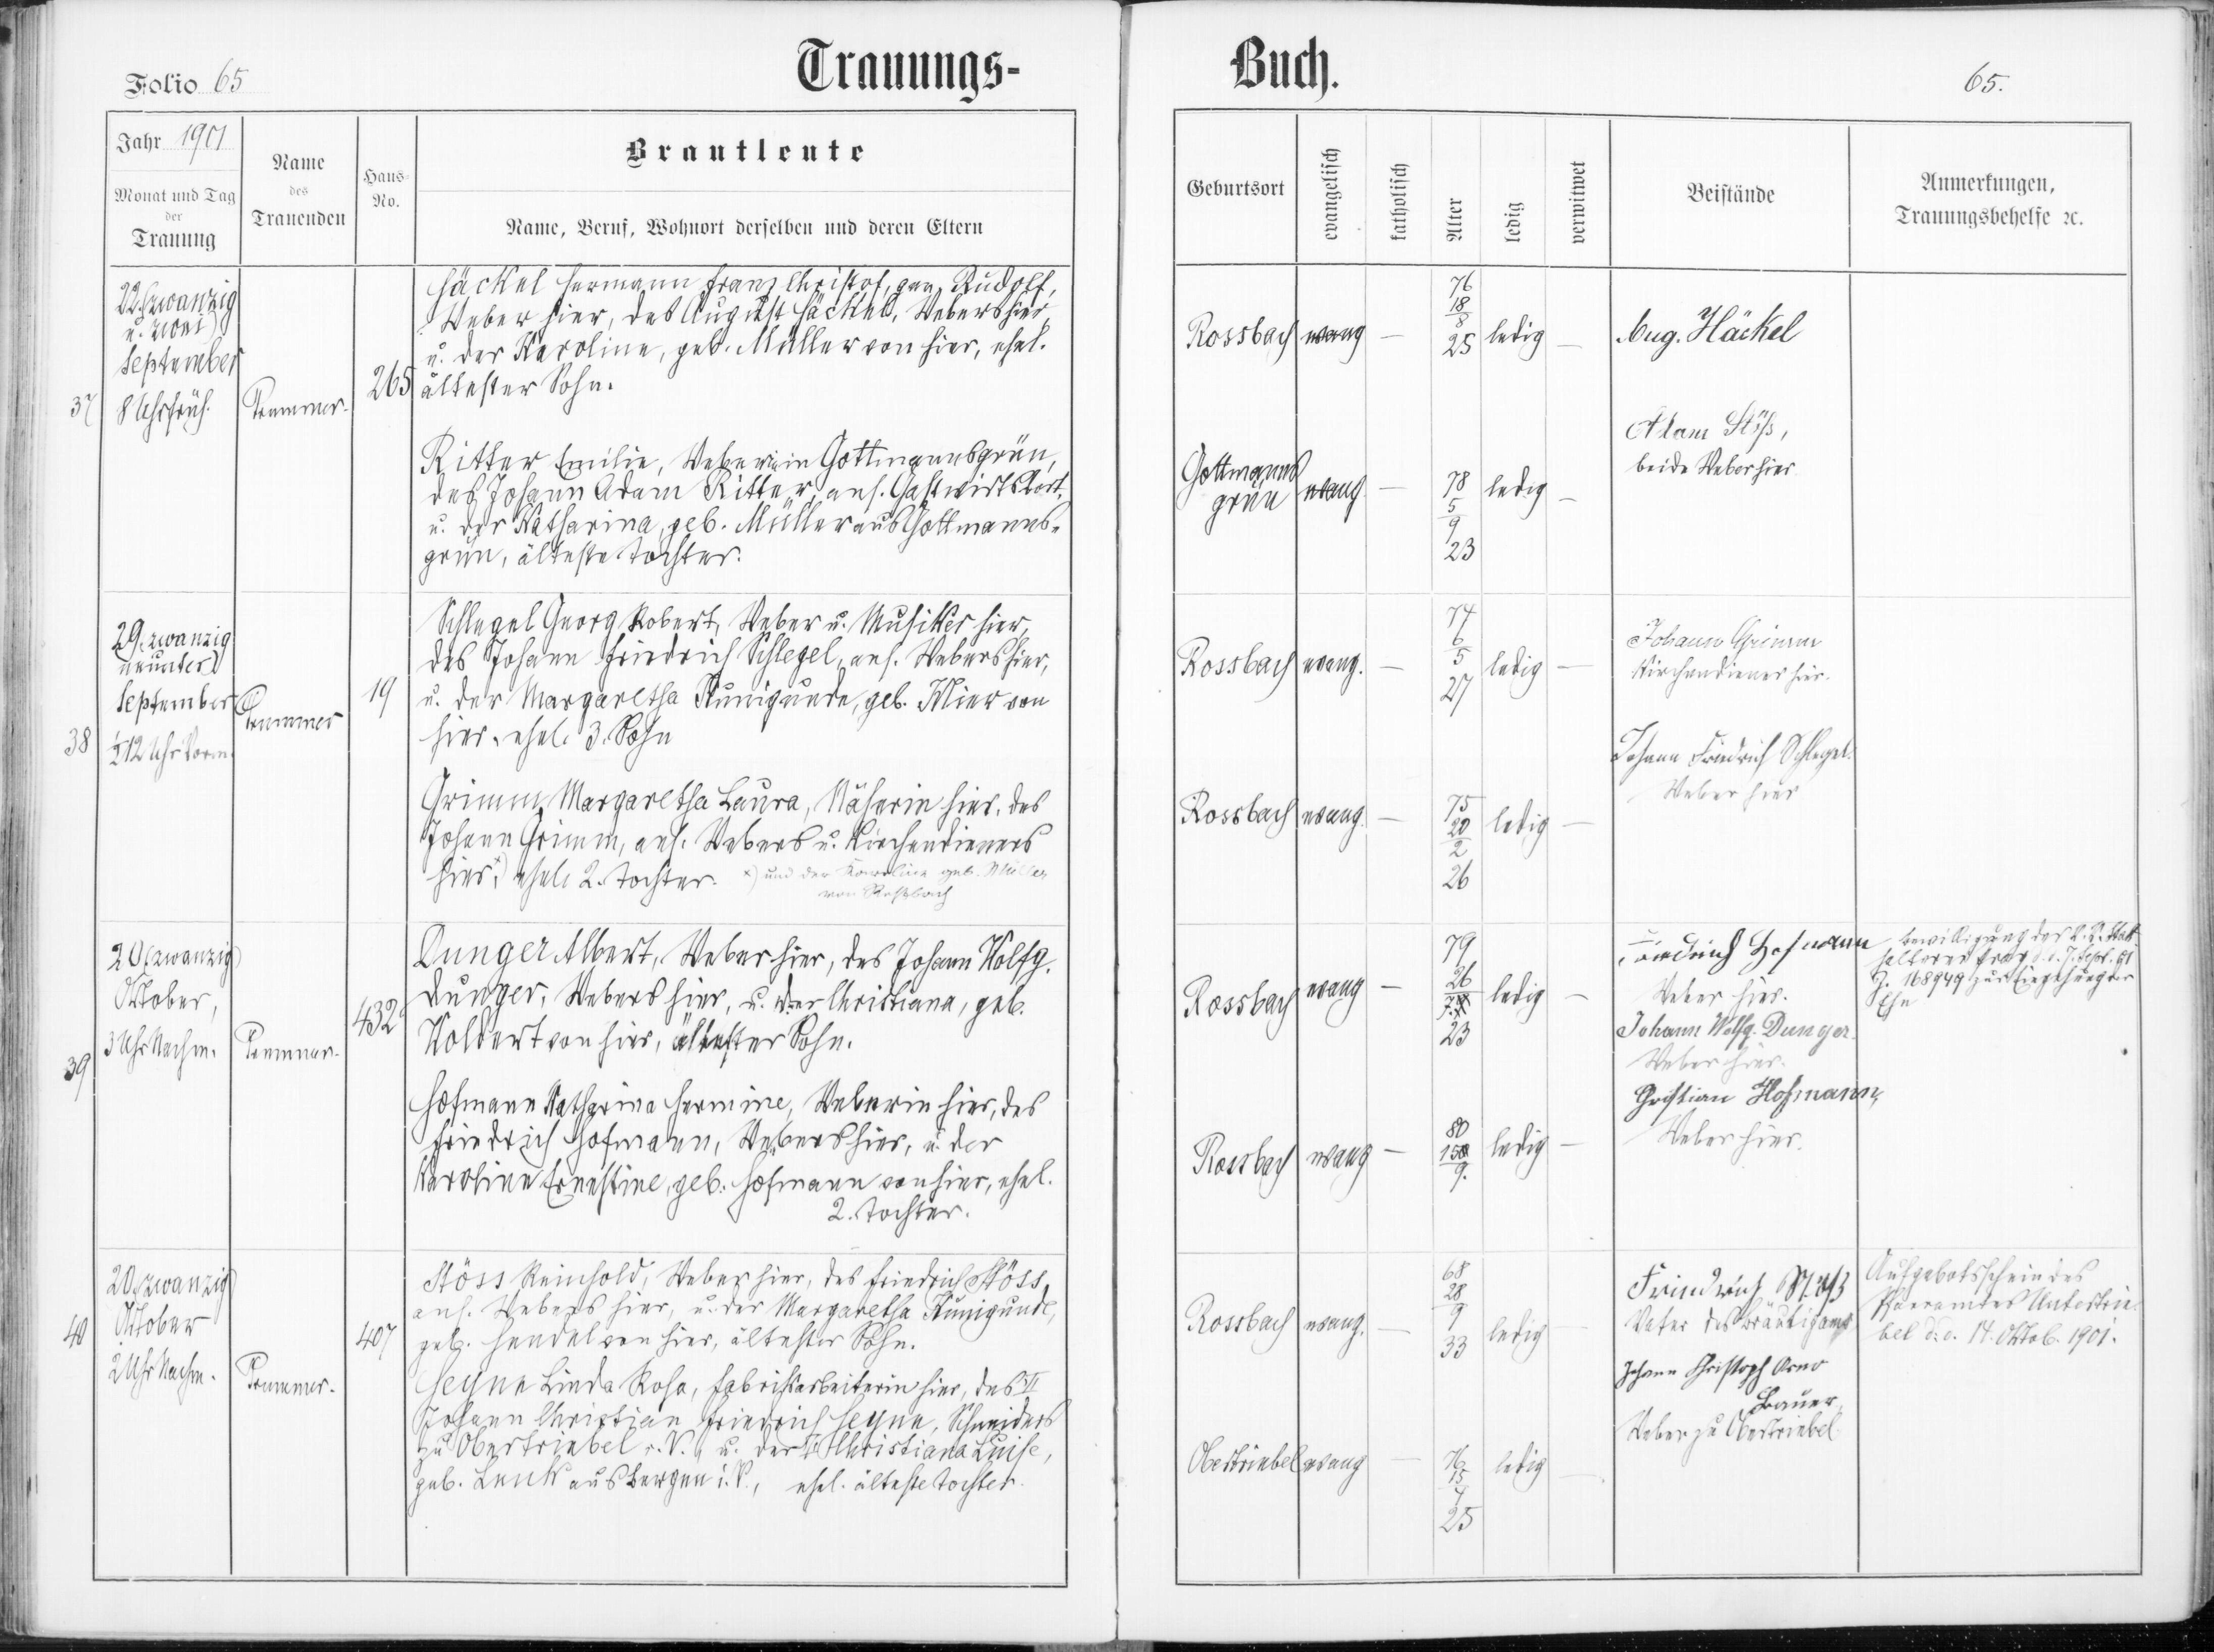 Trauungs-
Buch.
Folio 65
65.
Jahr 1901
Monat und Tag
der
Trauung
Name
des
Trauenden
Haus-
No.
Brautleute
Name, Beruf, Wohnort derselben und deren Eltern
Geburtsort
evangelisch
katholisch
Alter
ledig
verwitwet
Beistände
Anmerkungen,
Trauungsbehelfe ꝛc.
37
22. (zwanzig
u. zwei)
September
8 Uhr früh.
265
Häckel Hermann Franz Christof, gen. Rudolf,
Weber hier, des August Häckel, Webers hier,
u. der Karoline, geb. Müller von hier, ehel.
ältester Sohn.
Rossbach evang — 76 18/8 25 ledig —
Aug. Häckel
Ritter Emilie, Weberin in Gottmannsgrün,
des Johann Adam Ritter, ans. Gastwirts dort,
u. der Katharina, geb. Müller aus Gottmanns-
grün, älteste Tochter.
Gottmanns
grün evang. — 78 5/9 23 ledig —
Adam Stöß,
beide Weber hier
38
29. (zwanzig
neunter)
September
½12 Uhr Vorm.
19
Schlegel Georg Robert, Weber u. Musiker hier,
des Johann Friedrich Schlegel, ans. Webers hier,
u. der Margaretha Kunigunde, geb. Mier von
hier, ehel. 3. Sohn
Rossbach evang. — 74 6/5 27 ledig —
Johann Grimm
Kirchendiener hier.
Grimm Margaretha Laura, Näherin hier, des
Johann Grimm, ans. Webers u. Kirchendieners
hier, x) ehel. 2. Tochter. x) und der Karoline geb. Müller
von Roßbach
Rossbach evang. — 75 20/2 26 ledig —
Johann Friedrich Schlegel.
Weber hier
39
20 (zwanzig)
Oktober,
3 Uhr Nachm.
432
Dunger Albert, Weber hier, des Johann Wolfg.
Dunger, Webers hier, u. der Christiana, geb.
Wolbert von hier, ältester Sohn.
Rossbach evang — 79 26 23 ledig —
Friedrich Hofmann
Weber hier.
Johann Wolfg. Dunger.
Weber hier.
Bewilligung der k. k. Statt-
halterei Prag d. d. 7. Sept. 01
Z. 168949 zur Eingehung der
Ehe
Hofmann Katharina Hermine, Weberin hier, des
Friedrich Hofmann, Webers hier, u. der
Karoline Ernestine, geb. Hofmann von hier, ehel.
2. Tochter.
Rossbach evang — 80 9. ledig —
Christian Hofmann,
Weber hier.
40
20. (zwanzig)
Oktober
2 Uhr Nachm.
407
Stöss Reinhold, Weber hier, des Friedrich Stöss,
ans. Webers hier, u. der Margaretha Kunigunde,
geb. Hendel von hier, ältester Sohn.
Rossbach evang. — 68 28/9 33 ledig —
Friedrich Stöß
Vater des Bräutigams
Aufgebotsschein des
Pfarramtes Untertrie-
bel d. d. 14. Oktob. 1901.
Heyne Linda Rosa, Fabrikarbeiterin hier, des
Johann Christian Friedrich Heyne, Schneiders
zu Obertriebel i. V., u. der Christiana Luise,
geb. Lenk aus Bergen i. V., ehel. älteste Tochter.
Obertriebel evang — 76 15/4 25 ledig —
Johann Christoph Arno
Bauer,
Weber zu Obertriebel